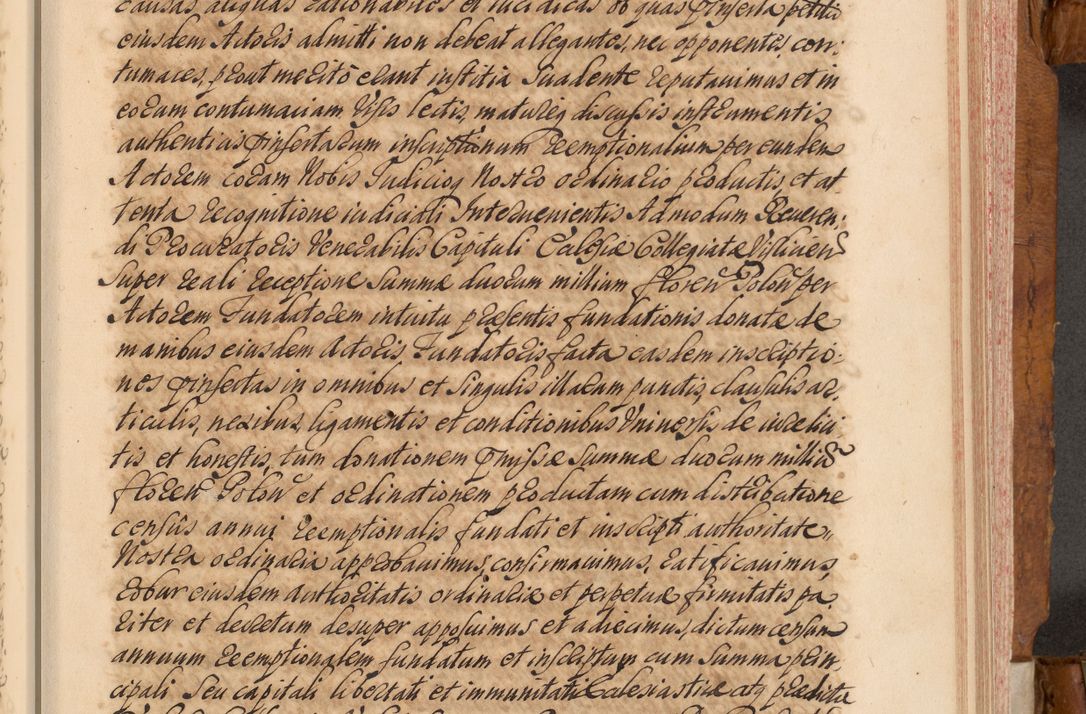 causas aliquas rationabiles et iuridicas ob quas pnserta petitio
eiusdem Actoris admitti non debeat allegantes, nec opponentes, con:
tumaces, prout merito erant iustitia suadente reputauimus et in
eorum contumaciam Visis lectis, matureq discussis instrumentis
authenticis pinsertarum inscriptionum Reemptionalium per eundem
Actorem coram Nobis Iudicioq Nostro ordinario productis, et at
tenta recognitione iudiciali Interuenientis Admodum Reueren:
di Procuratoris Venerabilis Capituli Ecclesiæ Collegiatæ Visliciens
super reali receptione summæ duorum millium floren Polon per
Actorem Fundatorem intuitu præsentis fundationis donatæ de
manibus eiusdem Actoris, Fundatoris facta easdem inscriptio:
nes pinsertas in omnibus et singulis illarum punctis, clausulis ar,
ticulis, nexibus, ligamentis et conditionibus Vniuersis de iure lici:
tis et honestis, tum donationem pmissæ summæ duorum milliu
floren Polon et ordinationem productam cum distributione
census annui reemptionalis fundati et inscripti authoritate
Nostra ordinaria approbauimus, confirmauimus, ratificauimus,
robur eiusdem authoritatis ordinariæ et perpetuæ firmitatis pa,
riter et decretum desuper apposuimus et adiecimus, dictum censum
annuum reemptionalem fundatum et inscriptum cum summa prin
cipali seu capitali libertati et immunitati Ecclesiasticæ atq prædictæ